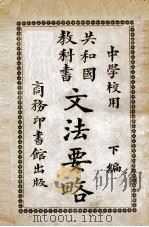 中學校用
共和國
教科書
文法要略
下編
商務印書館出版